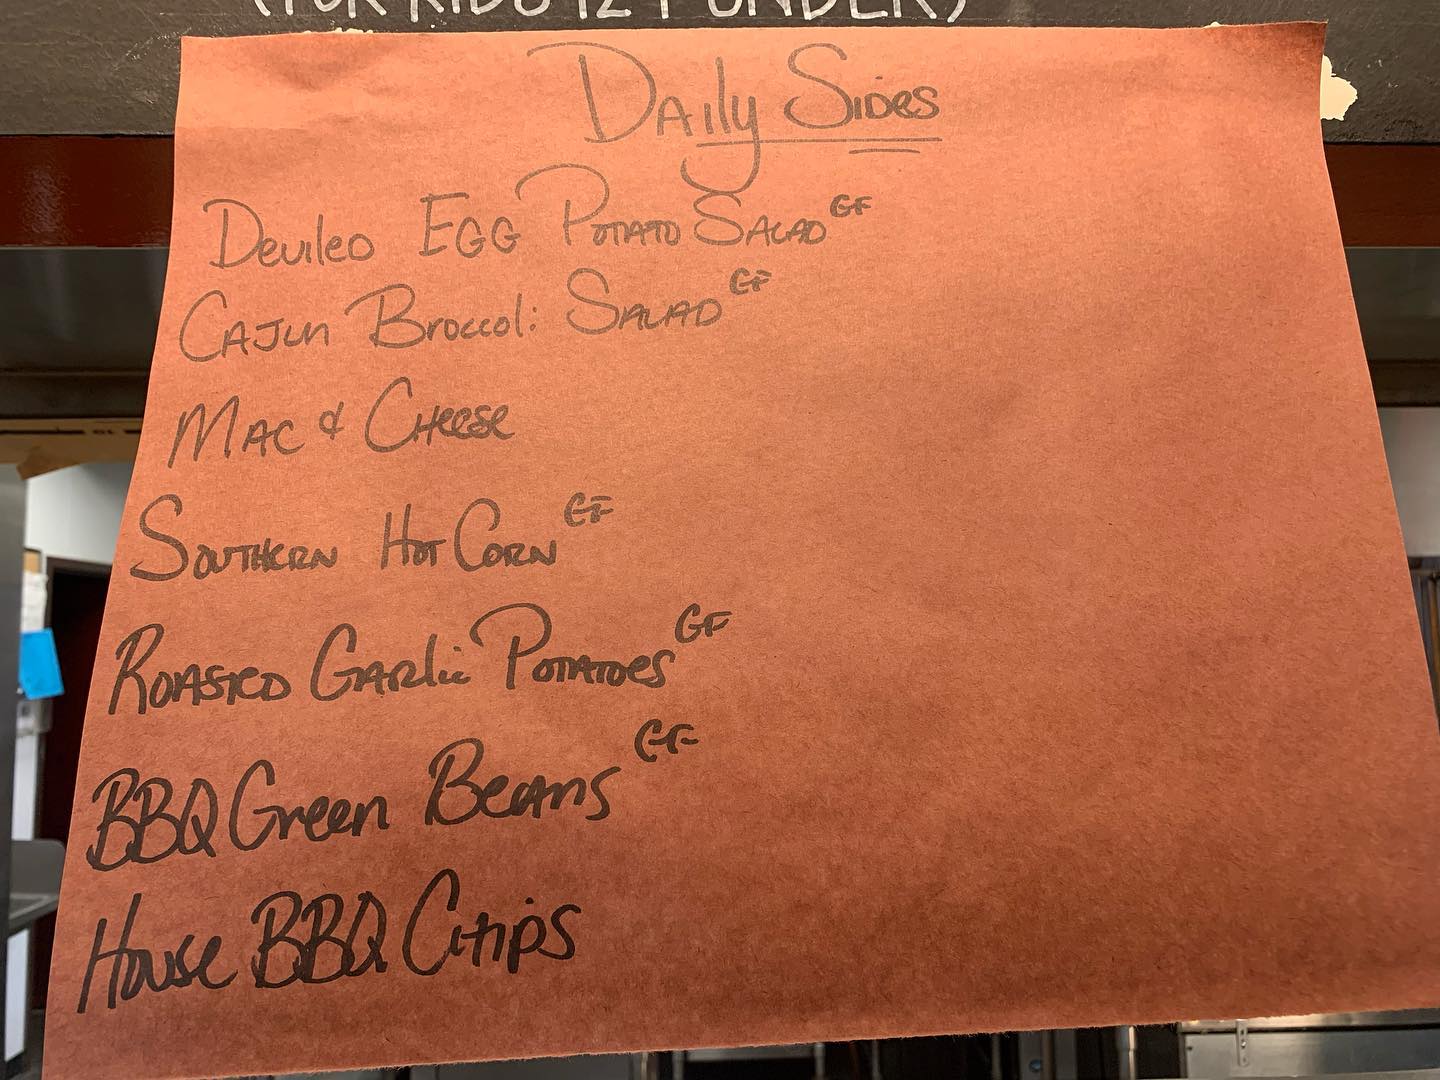 (FOR KIDS 12 & UNDER)
Daily Sides
Deviled Egg Potato Salad GF
Cajun Broccoli Salad GF
Mac & Cheese
Southern Hot Corn GF
Roasted Garlic Potatoes GF
BBQ Green Beans GF
House BBQ Chips